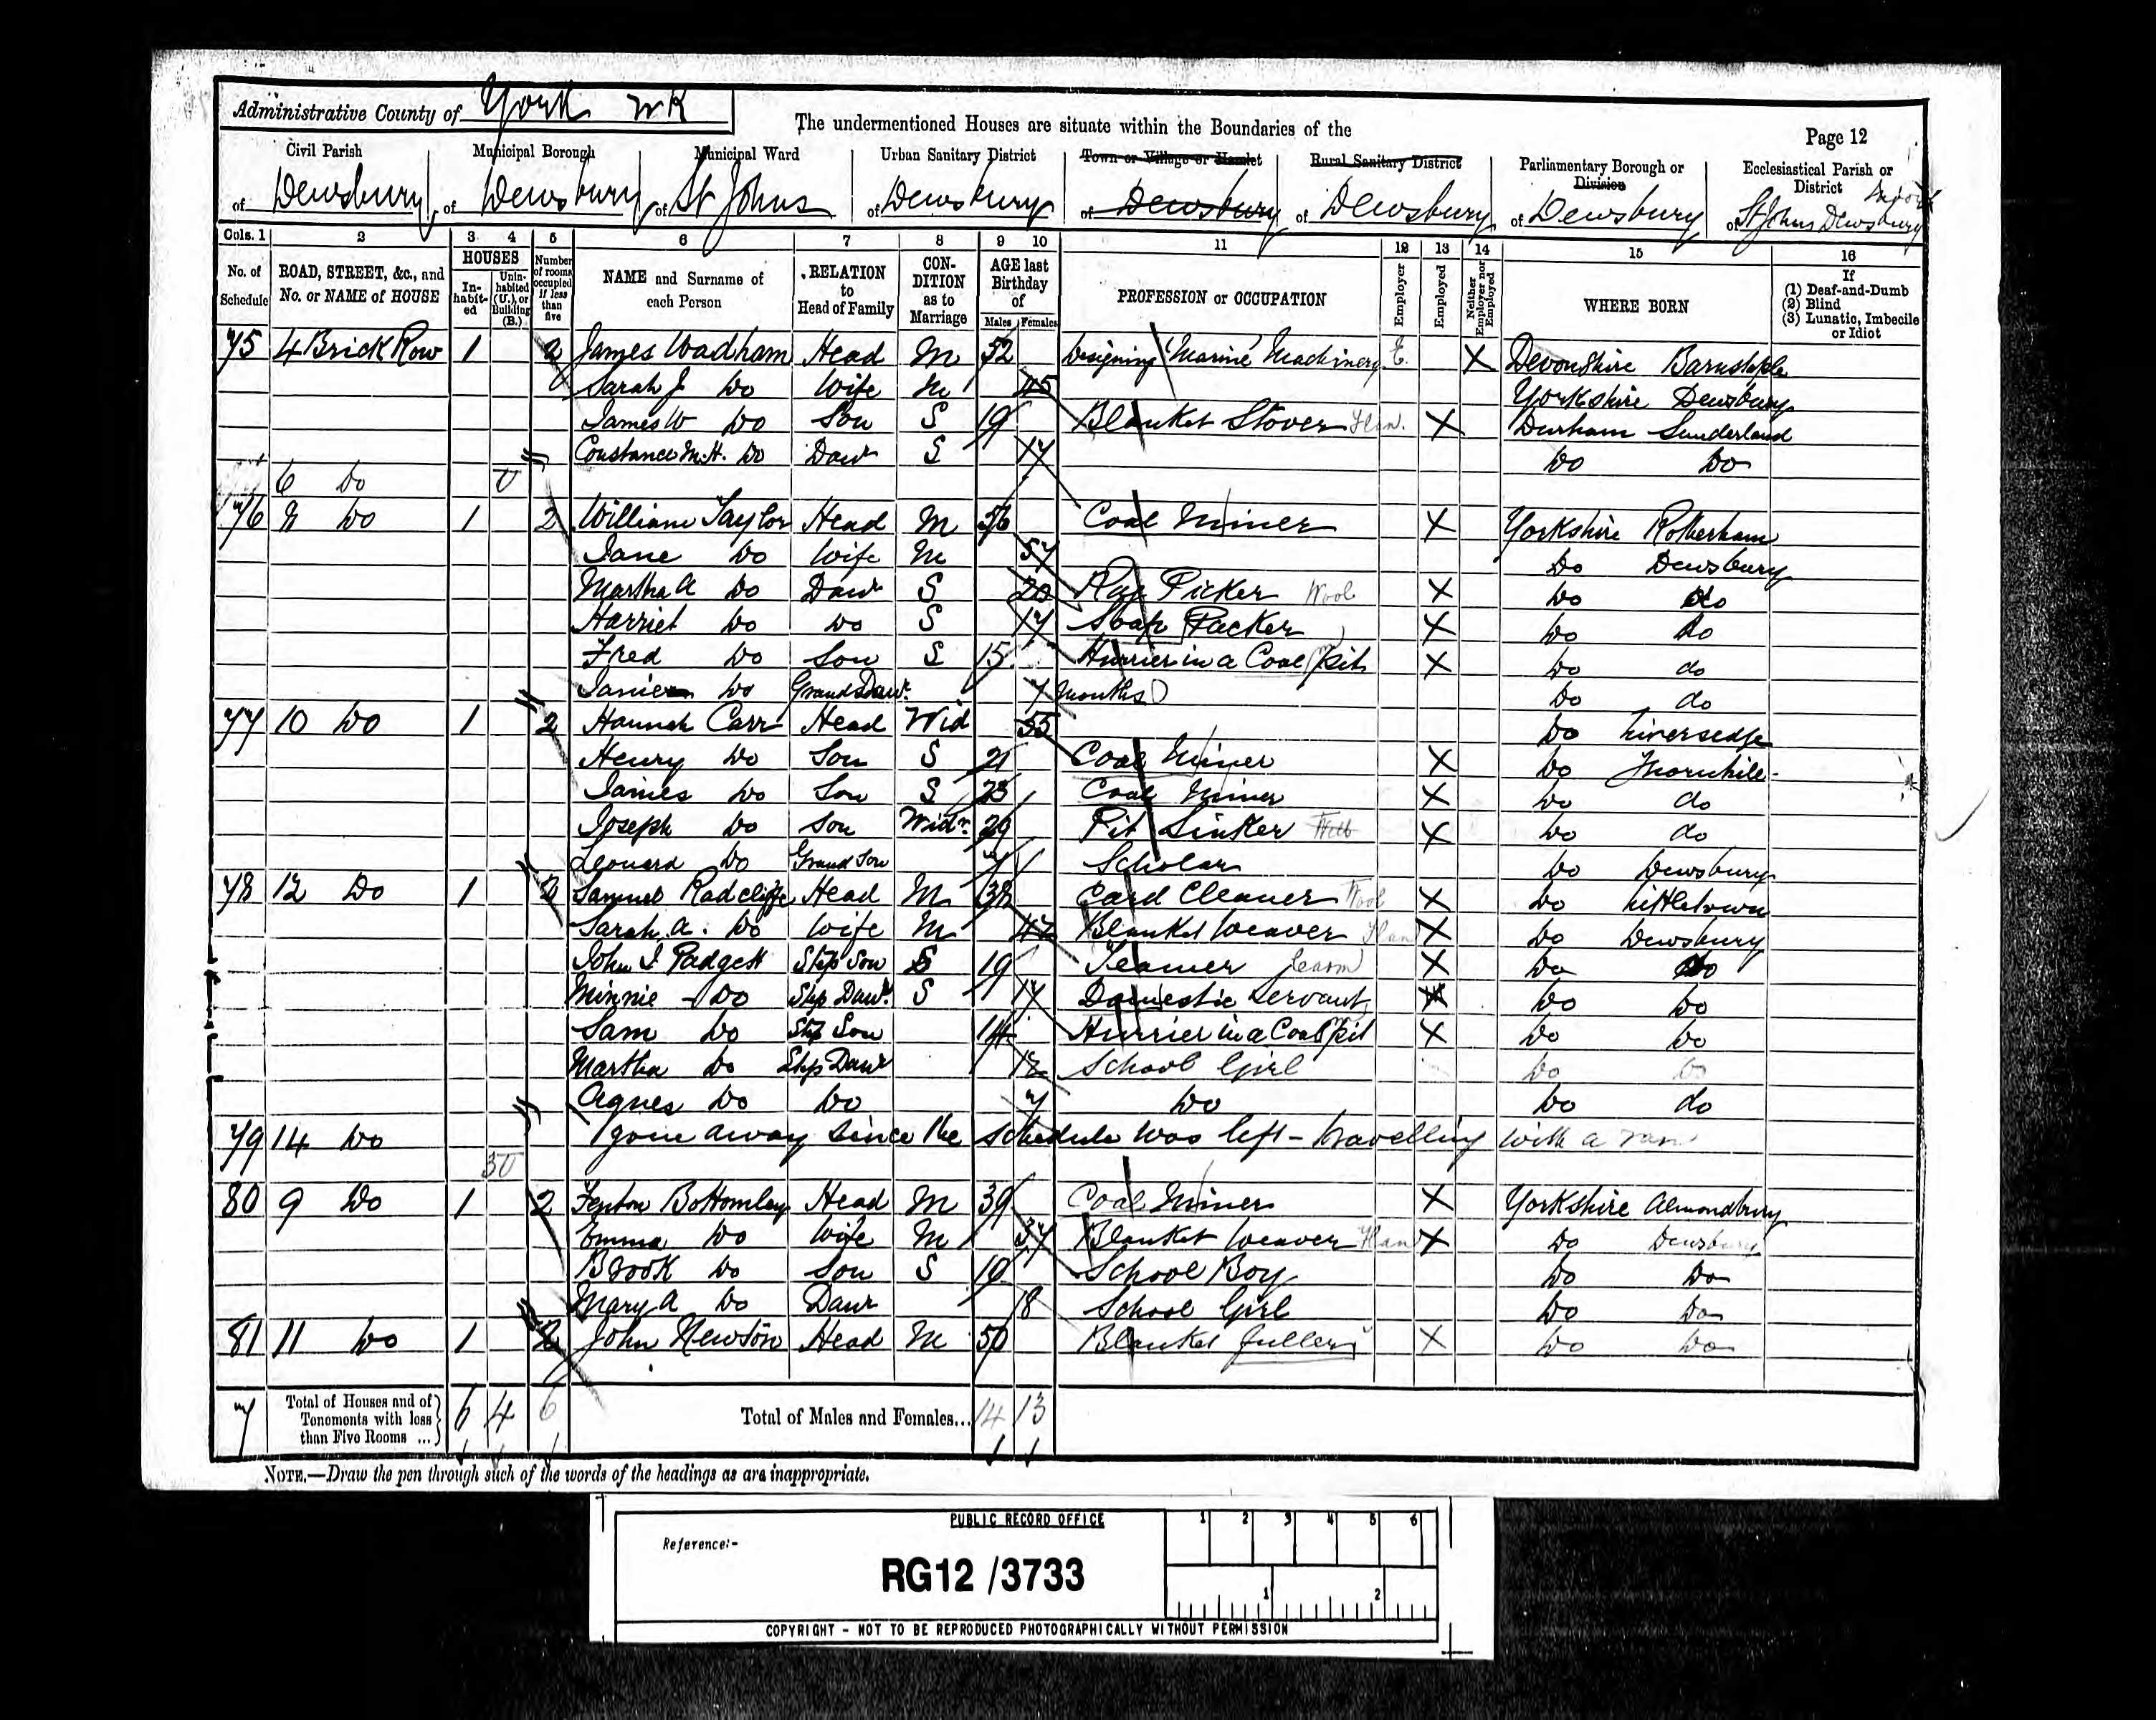 Administrative County of York WR
The undermentioned Houses are situate within the Boundaries of the
Page 12
Civil Parish Municipal Borough Municipal Ward Urban Sanitary District Town or Village or Hamlet Rural Sanitary District Parliamentary Borough or Division Ecclesiastical Parish or District
of Dewsbury of Dewsbury of St Johns of Dewsbury of Dewsbury of Dewsbury of Dewsbury of St Johns Dewsbury Moor
Cols. 1 2 3 4 5 6 7 8 9 10 11 12 13 14 15 16
No. of Schedule ROAD, STREET, &c., and No. or NAME of HOUSE HOUSES Inhabited Uninhabited (U.), or Building (B.) Number of rooms occupied if less than five NAME and Surname of each Person RELATION to Head of Family CONDITION as to Marriage AGE last Birthday of Males Females PROFESSION or OCCUPATION Employer Employed Neither Employer nor Employed WHERE BORN If (1) Deaf-and-Dumb (2) Blind (3) Lunatic, Imbecile or Idiot
75 4 Brick Row 1 2 James Wadham Head M 52 Designing Marine Machinery E. X Devonshire Barnstaple
Sarah J Do Wife M 45 Yorkshire Dewsbury
James W Do Son S 19 Blanket Stover X Durham Sunderland
Constance M. H. Do Daur S 17 Do Do
6 Do U
76 8 Do 1 2 William Taylor Head M 56 Coal Miner X Yorkshire Rotherham
Jane Do Wife M 57 Do Dewsbury
Martha A Do Daur S 20 Rag Picker Wool X Do Do
Harriet Do Do S 17 Soap Packer X Do Do
Fred Do Son S 15 Hurrier in a Coal Pit X Do do
Janie Do Grand Daur 7 months Do do
77 10 Do 1 2 Hannah Carr Head Wid 55 Do Liversedge
Henry Do Son S 21 Coal Miner X Do Thornhill
James Do Son S 23 Coal Miner X Do do
Joseph Do Son Widr 29 Pit Sinker X Do do
Leonard Do Grand Son 7 Scholar Do Dewsbury
78 12 Do 1 2 Samuel Radcliffe Head M 38 Card Cleaner Wool X Do Littletown
Sarah A. Do Wife M 42 Blanket Weaver X Do Dewsbury
John I Padgett Step Son S 19 Teamer X Do Do
Minnie Do Step Daur S 17 Domestic Servant X Do Do
Sam Do Step Son 14 Hurrier in a Coal Pit X Do Do
Martha Do Step Daur 12 School Girl Do Do
Agnes Do Do 7 Do Do do
79 14 Do gone away since the schedule was left - travelling with a van
3U
80 9 Do 1 2 Fenton Bottomley Head M 39 Coal Miner X Yorkshire Almondbury
Emma Do Wife M 37 Blanket Weaver X Do Dewsbury
Brook Do Son S 10 School Boy Do Do
Mary A Do Daur 8 School Girl Do Do
81 11 Do 1 2 John Newton Head M 50 Blanket fuller X Do Do
7 Total of Houses and of Tenements with less than Five Rooms ... 6 4 6 Total of Males and Females... 14 13
NOTE.—Draw the pen through such of the words of the headings as are inappropriate.
PUBLIC RECORD OFFICE
1 2 3 4 5 6
Reference:-
RG12 /3733
1 2
COPYRIGHT - NOT TO BE REPRODUCED PHOTOGRAPHICALLY WITHOUT PERMISSION